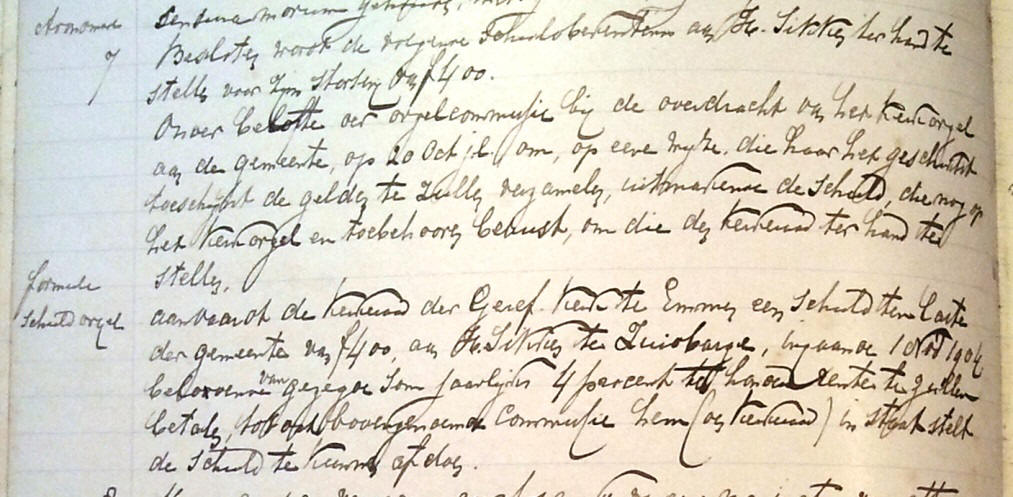 censura morum
7 Besloten wordt de volgende schuldbekentenis aan H. Sikkes ter hand te
stellen voor zijn storting van f 400.
Onder belofte der orgelcommissie bij de overdracht van het kerkorgel
aan de gemeente, op 20 Oct j.l. om, op eene wijze, die haar het geschiktst
toeschijnt de gelden te zullen verzamelen, uitmakende de schuld, die nog op
het kerkorgel en toebehooren berust, om die den kerkeraad ter hand te
stellen,
formule
schuld orgel
aanvaardt de kerkeraad der Geref. Kerk te Emmen een schuld ten laste
der gemeente van f 400, aan H. Sikkes te Zuidbarge, ingaande 1 Nov 1904
belovende van gezegde som jaarlijks 4 percent rente te zullen
betalen, totdat bovengenoemde Commissie hem (den kerkeraad) in staat stelt
de schuld te kunnen afdoen.